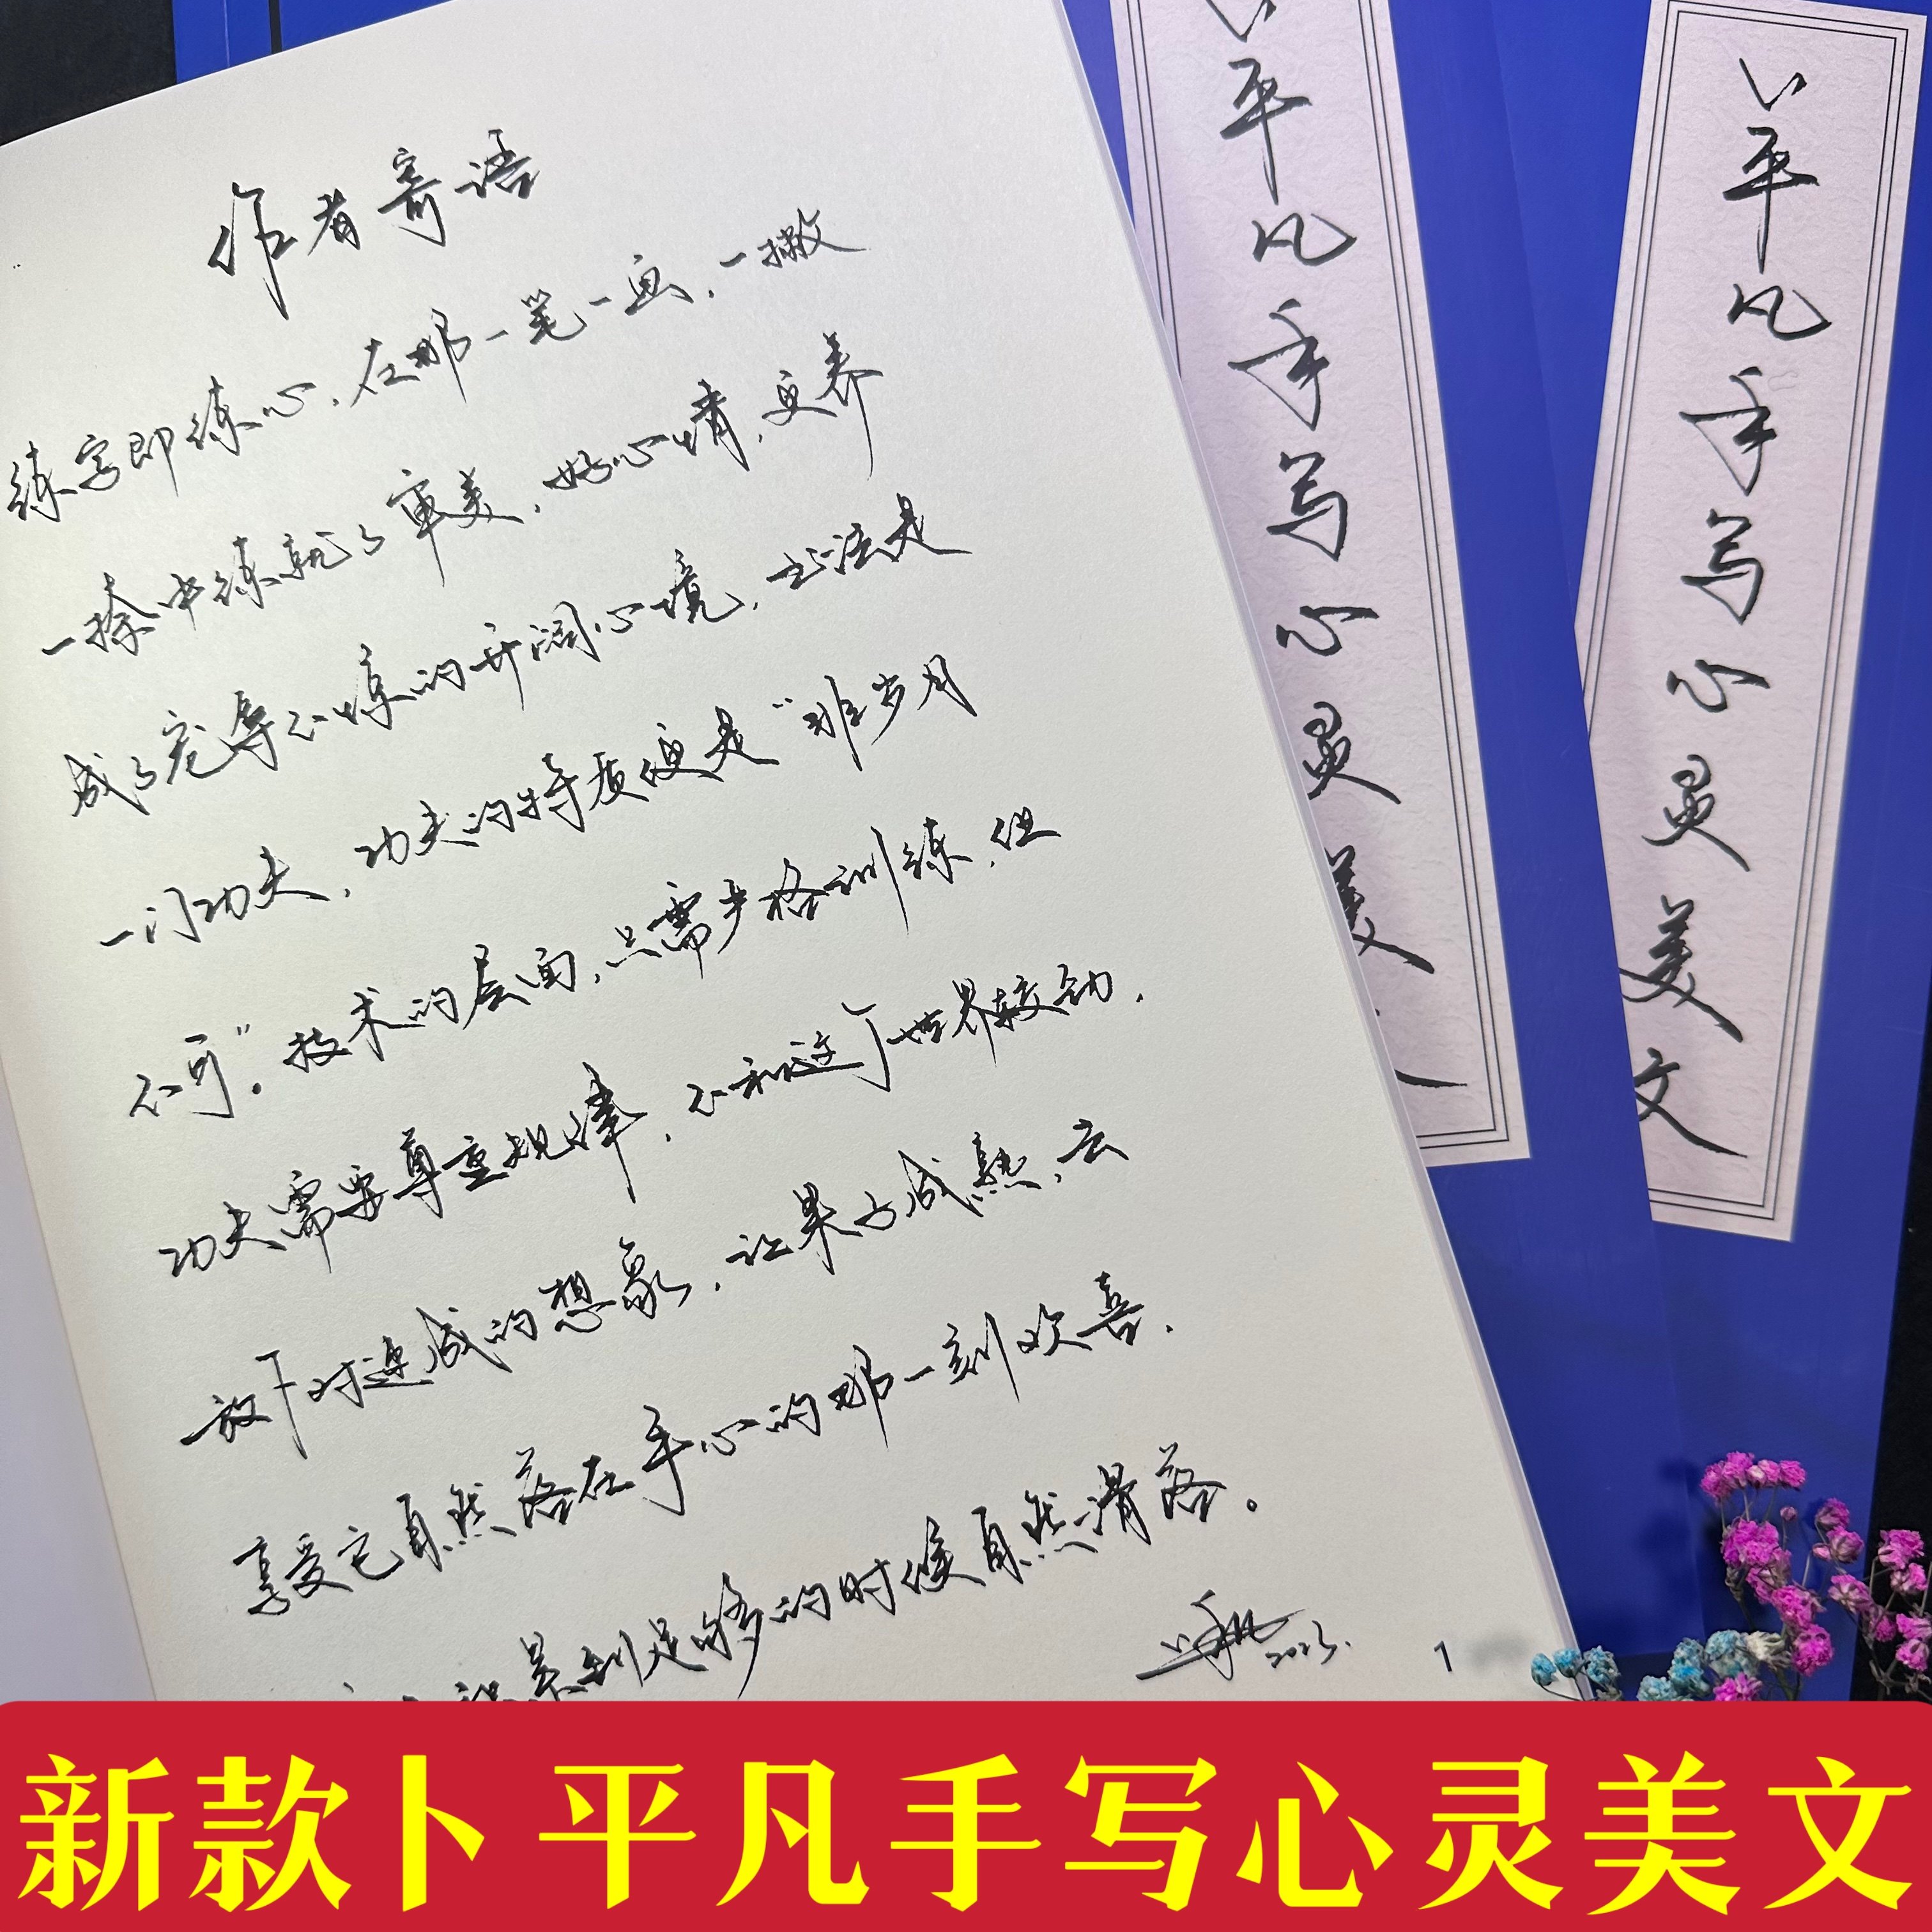 作者寄语
练字即练心，在那一笔一画，一撇
一捺中练就了审美，好心情，更养
成了宠辱不惊的开阔心境，书法是
一门功夫，功夫的特质便是“非岁月
不可”。技术的层面，只需严格训练，但
功夫需要尊重规律，不和这个世界较劲，
放下对速成的想象，让果子成熟，去
享受它自然落在手心的那一刻欢喜，
累到足够的时候自然滑落。
2023.
1
卜平凡手写心灵美文
卜平凡手写心灵美文
新款卜平凡手写心灵美文